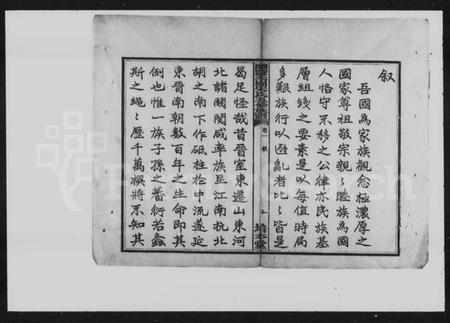 叙
吾國為家族觀念極濃厚之
國家尊祖敬宗親親睦族為國
人恪守不移之公律亦民族基
層組綫之要素是以每值時局
多艱族行以避亂者比比皆是
卷一 叙
七
培本堂
曷足怪哉昔晉室東遷山東河
北諸閥閱咸率族至江南抗北
胡之南下作砥柱於中流遂延
東晉南朝數百年之生命即其
例也惟一族子孫之蕃衍洽螽
斯之繩繩歷千萬禩將不知其